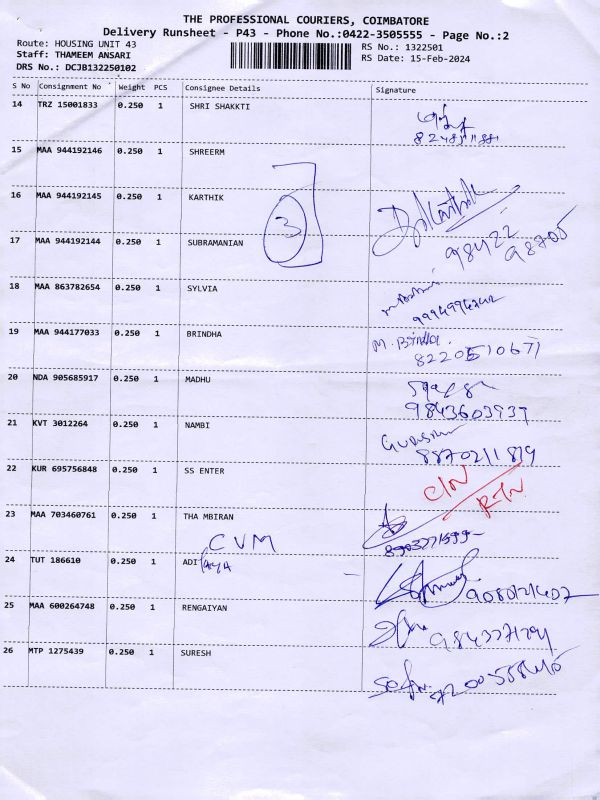 THE PROFESSIONAL COURIERS, COIMBATORE
Delivery Runsheet - P43 - Phone No.:0422-3505555 - Page No.:2
Route: HOUSING UNIT 43
RS No.: 1322501
Staff: THAMEEM ANSARI
RS Date: 15-Feb-2024
DRS No.: DCJB132250102
S No Consignment No Weight PCS Consignee Details Signature
14 TRZ 15001833 0.250 1 SHRI SHAKKTI
15 MAA 944192146 0.250 1 SHREERM
16 MAA 944192145 0.250 1 KARTHIK
3
17 MAA 944192144 0.250 1 SUBRAMANIAN
98422
98705
18 MAA 863782654 0.250 1 SYLVIA
19 MAA 944177033 0.250 1 BRINDHA M. Brindha
8220510671
20 NDA 905685917 0.250 1 MADHU
9843603937
21 KVT 3012264 0.250 1 NAMBI
8870211819
22 KUR 695756848 0.250 1 SS ENTER
23 MAA 703460761 0.250 1 THA MBIRAN
CVM
24 TUT 186610 0.250 1 ADI
9080121407
25 MAA 600264748 0.250 1 RENGAIYAN
26 MTP 1275439 0.250 1 SURESH